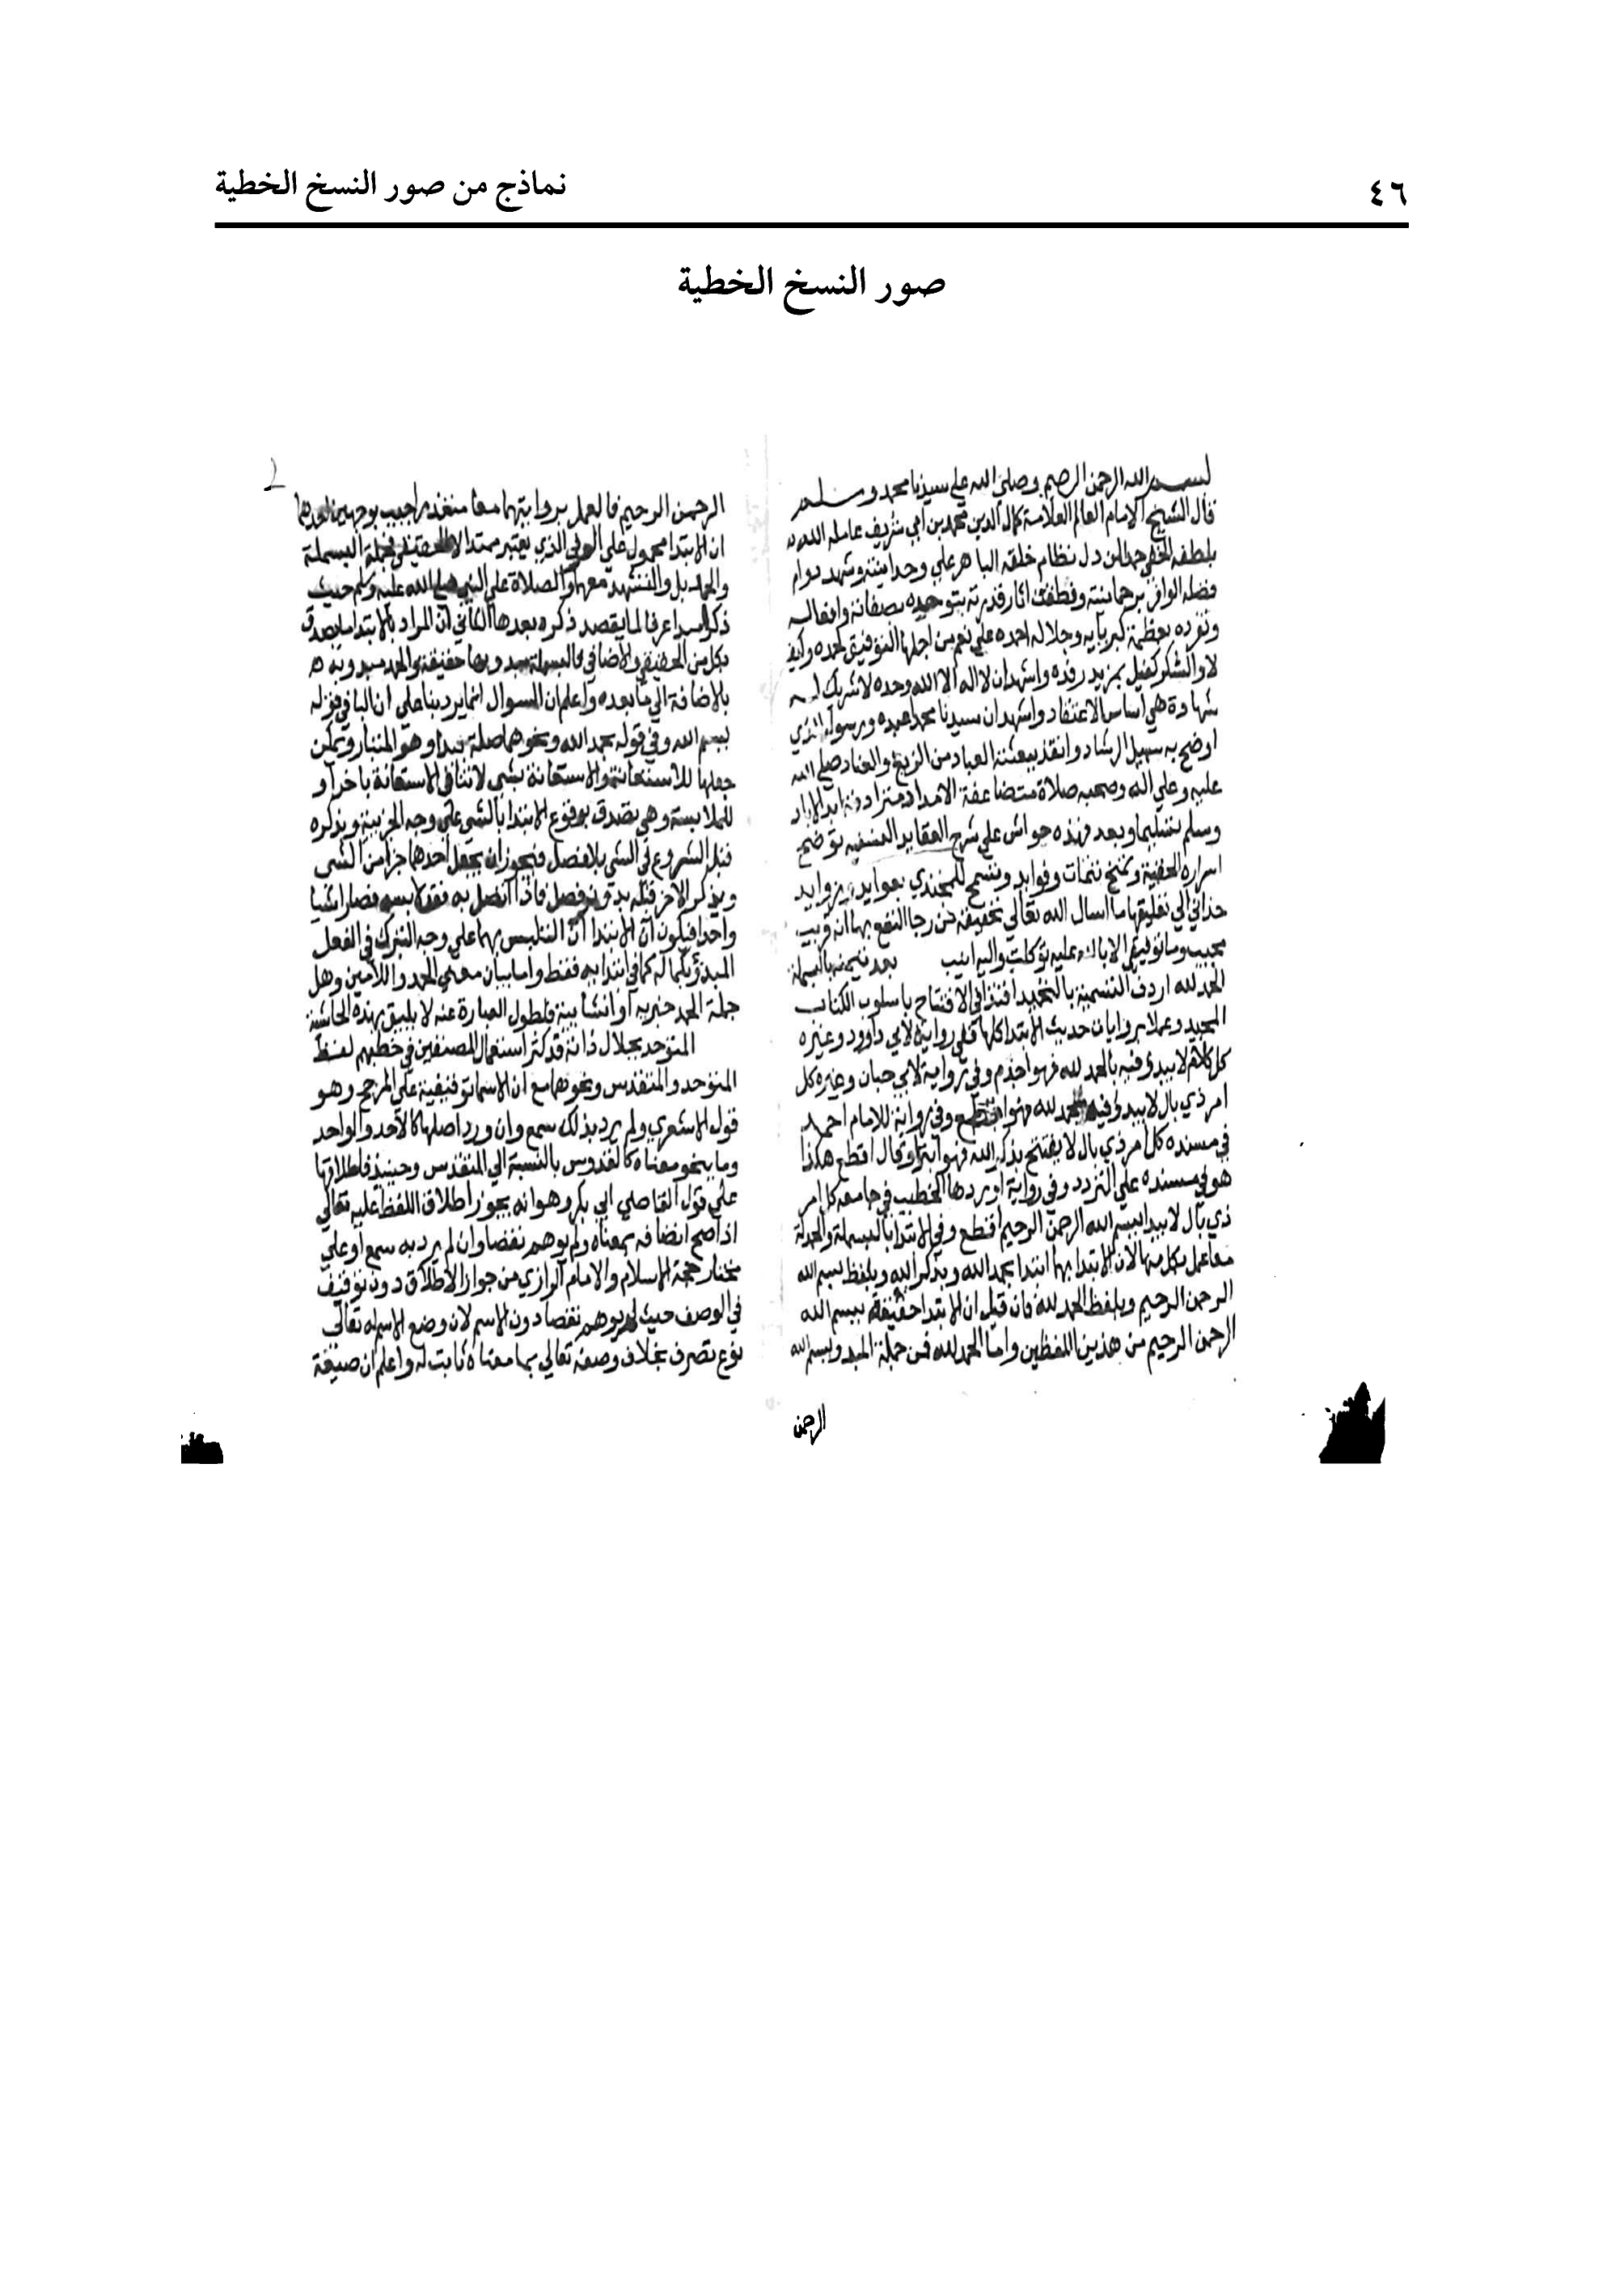 ٤٦
نماذج من صور النسخ الخطية
صور النسخ الخطية
بسم الله الرحمن الرحيم وصلي الله علي سيدنا محمد وسلم
قال الشيخ الامام العالم العلامة كمال الدين محمد بن ابي شريف عامله الله
بلطفه الخفي حمدا لمن دل نظام خلقه الباهر علي وحدانيته وشهد دوام
فضله الوافر برحمانيته ونطقت اثار قدرته بتوحيده بصفاته وافعاله
وتفرده بعظمة كبريايه وجلاله احمده علي نعم من اجلها التوفيق لحمده وكيف
لا والشكر كفيل بمزيد رفده واشهد ان لا اله الا الله وحده لا شريك له
شهادة هي اساس الاعتقاد واشهد ان سيدنا محمدا عبده ورسوله الذي
اوضح به سبيل الرشاد وانقذ ببعثته العباد من الزيغ والعناد صلي الله
عليه وعلي اله وصحبه صلاة متضاعفة الامداد مترادفة ابد الاباد
وسلم تسليما وبعد فهذه حواش علي شرح العقايد النسفيه توضح
اسراره الخفية وتمنح تتمات وفوايد وتسمح للمجتدي بعوايد وزوايد
حداني الي تعليقها ما اسال الله تعالي تحقيقه من رجا النفع بها انه قريب
مجيب وما توفيقي الا بالله عليه توكلت واليه انيب بعد تيمنه بالبسملة
الحمد لله اردف التسمية بالتحميد اقتدا في الافتتاح باسلوب الكتاب
المجيد وعملا بروايات حديث الابتدا كلها ففي رواية لابي داوود وغيره
كل كلام لا يبدؤ فيه بالحمد لله فهو اجذم وفي رواية لابي حبان وغيره كل
امر ذي بال لا يبدؤ فيه بحمد لله فهو اقطع وفي رواية للامام احمد
في مسنده كل امر ذي بال لا يفتتح بذكر الله فهو ابتر او قال اقطع هكذا
هو في مسنده علي التردد وفي رواية اوردها الخطيب في جامعه كل امر
ذي بال لا يبدا ببسم الله الرحمن الرحيم اقطع وفي الابتدا بالبسملة والحمدلة
معا عمل بكل منها لان الابتدا بها ابتدا بحمد الله وبذكر الله وبلفظ بسم الله
الرحمن الرحيم وبلفظ الحمد لله فان قيل ان الابتدا حقيقة ببسم الله
الرحمن الرحيم من هذين اللفظين واما الحمد لله فمن جملة المبدو ببسم الله
الرحمن
الرحمن الرحيم فالعمل بروايتهما معا متعذر اجيب بوجهين احدها
ان الابتدا محمول علي العرفي الذي يعتبر ممتدا لا الحقيقي فجملة البسملة
والحمد بل والتشهد معها والصلاة علي النبي صلي الله عليه وسلم حيث
ذكر ابتدا عرفا لما يقصد ذكره بعدها الثاني ان المراد بالابتدا ما يصدق
بكل من الحقيقي والاضافي فالبسملة مبدو بها حقيقة والحمد مبدو به
بالاضافة الي ما بعده واعلم ان السوال انما يرد بنا علي ان البا في قوله
ببسم الله وفي قوله بحمد الله ونحوهما صلة يبدا وهو المتبادر ويمكن
جعلها للاستعانة والاستعانة بشي لا تنافي الاستعانة باخر او
للملابسة وهي تصدق بوقوع الابتدا بالشي علي وجه الجزيية وبذكره
قبل الشروع في الشي بلا فصل فيجوز ان يجعل احدها جزا من الشي
ويذكر الاخر قبله بدون فصل فاذا اتصل به فقد لابسه فصارا شيا
واحدا فيكون ان الابتدا ان التلبس بهما علي وجه التبرك في الفعل
المبدؤ بكماله كما في ابتدا به فقط واما بيان معني الحمد واللامين وهل
جملة الحمد خبرية او انشايية فلطول العبارة عنه لا يليق بهذه الحاشية
المتوحد بجلال ذاته قد كثر استعمال المصنفين في خطبهم لفظ
المتوحد والمتقدس ونحوها مع ان الاسما توقيفية علي المرجح وهو
قول الاشعري ولم يرد بذلك سمع وان ورد اصلها كالاحد والواحد
وما بنحو معناه كالقدوس بالنسبة الي المتقدس وحينيذ فاطلاقها
علي قول القاضي ابي بكر وهو انه يجوز اطلاق اللفظ عليه تعالي
اذا صح اتصافه بمعناه ولم يوهم نقصا وان لم يرد به سمع او علي
مختار حجة الاسلام والامام الرازي من جواز الاطلاق دون توقيف
في الوصف حيث لم يوهم نقصا دون الاسم لان وضع الاسم له تعالي
نوع تصرف بخلاف وصفه تعالي بما معناه ثابت له واعلم ان صيغة